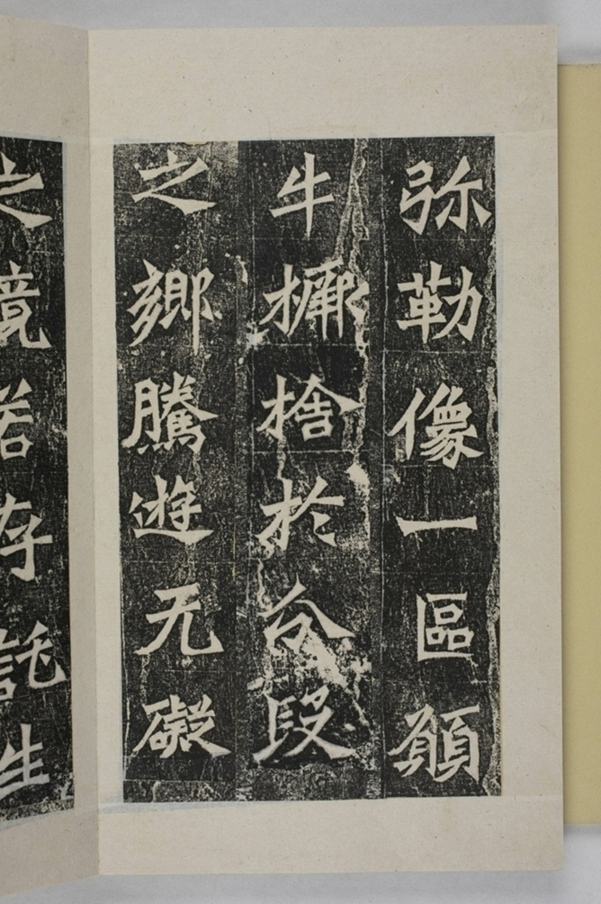 弥勒像一區願
牛橛捨於分段
之鄉騰遊无礙
之境若存託生